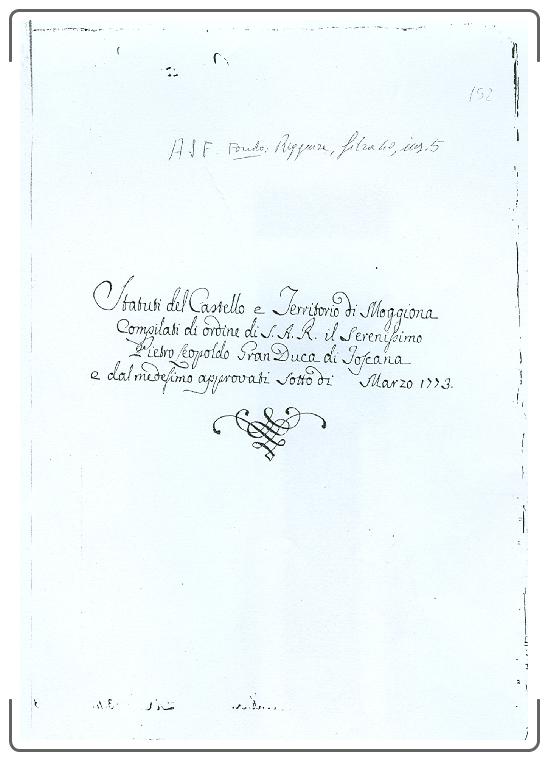 152
ASF. Fondo: Reggenza, filza 60, ins. 5
Statuti del Castello e Territorio di Moggiona
Compilati di ordine di S. A. R. il Serenissimo
Pietro Leopoldo Gran Duca di Toscana
e dal medesimo approvati sotto di Marzo 1773.